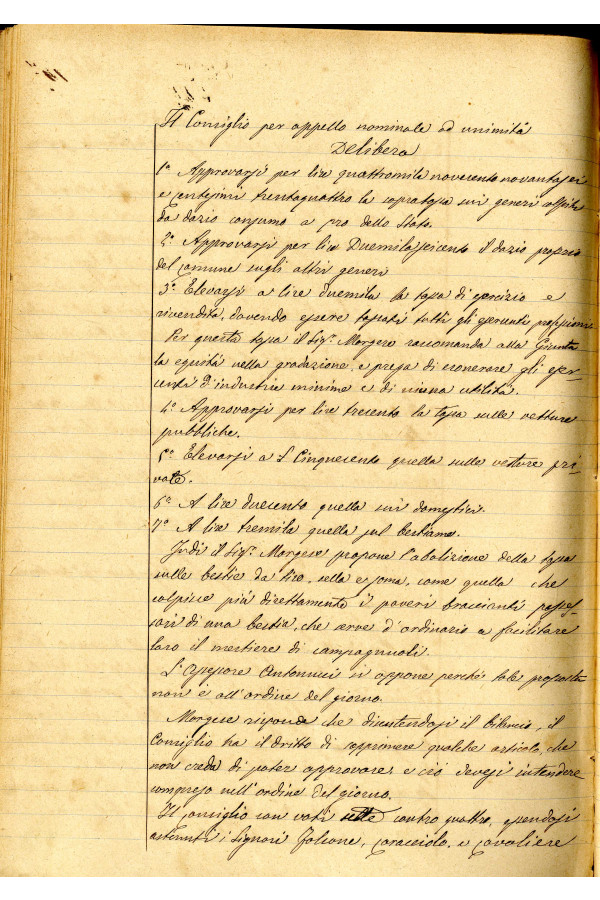 Il Consiglio per appello nominale ad unimità
Delibera
1º Approvarsi per lire quattromila novecento novantasei
e centesimi trentaquattro la sopratassa sui generi colpiti
da dazio consumo a pro dello Stato.
2º Approvarsi per lire Duemilaseicento il dazio proprio
del Comune sugli altri generi
3º Elevarsi a lire duemila la tassa di esercizio e
rivendita, dovendo essere tassati tutti gli esercenti
Per questa tassa il Sigr. Morgese raccomanda alla Giunta
la equità nella gradazione, e prega di esonerare gli eser-
centi d'industrie minime e di niuna utilità.
4º Approvarsi per lire trecento la tassa sulle vetture
pubbliche.
5º Elevarsi a £ Cinquecento quella sulle vetture pri-
vate.
6º A lire duecento quella sui domestici.
7º A lire tremila quella sul bestiame.
Indi il Sigr. Morgese propone l'abolizione della tassa
sulle bestie da tiro, sella e soma, come quella che
colpisce più direttamente i poveri braccianti posses-
sori di una bestia, che serve d'ordinario a facilitare
loro il mestiere di campagnuoli.
L'Assessore Antonucci si oppone perché tale proposta
non è all'ordine del giorno.
Morgese risponde che discutendosi il bilancio, il
Consiglio ha il dritto di sopprimere qualche articolo, che
non creda di poter approvare, e ciò devesi intendere
compreso nell'ordine del giorno.
Il Consiglio con voti sette contro quattro, essendosi
astenuti i Signori Falcone, Caracciolo, e Cavaliere